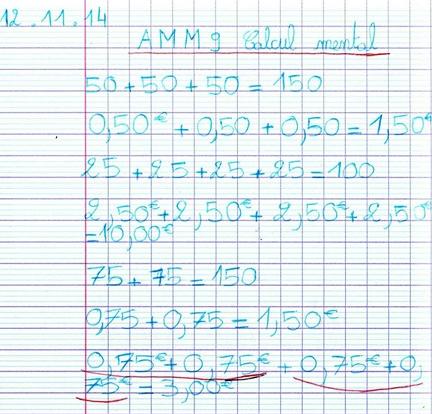 12.11.14
AMM9 Calcul mental
50 + 50 + 50 = 150
0,50€ + 0,50 + 0,50 = 1,50€
25 + 25 + 25 + 25 = 100
2,50€ + 2,50€ + 2,50€ + 2,50€
= 10,00€
75 + 75 = 150
0,75 + 0,75 = 1,50€
0,75€ + 0,75€ + 0,75€ + 0,
75€ = 3,00€